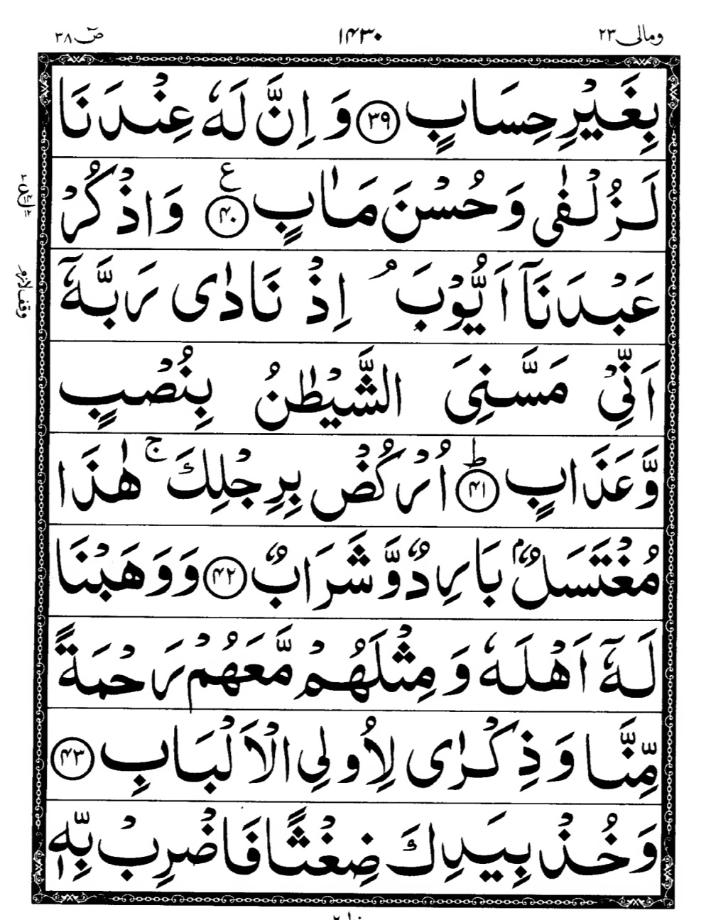 ومالی ۲۳ ۱۴۳۰ صٓ ۳۸
بِغَيْرِ حِسَابٍ ﴿۳۹﴾ وَ اِنَّ لَهٗ عِنْدَنَا
لَزُلْفٰى وَ حُسْنَ مَاٰبٍ ﴿۴۰﴾ ع وَ اذْكُرْ
عَبْدَنَاۤ اَيُّوْبَ ۘ اِذْ نَادٰى رَبَّهٗۤ
اَنِّىْ مَسَّنِىَ الشَّيْطٰنُ بِنُصْبٍ
وَّ عَذَابٍ ﴿۴۱﴾ ط اُرْكُضْ بِرِجْلِكَ ۚ هٰذَا
مُغْتَسَلٌۢ بَارِدٌ وَّ شَرَابٌ ﴿۴۲﴾ وَ وَهَبْنَا
لَهٗۤ اَهْلَهٗ وَ مِثْلَهُمْ مَّعَهُمْ رَحْمَةً
مِّنَّا وَ ذِكْرٰى لِاُولِى الْاَلْبَابِ ﴿۴۳﴾
وَ خُذْ بِيَدِكَ ضِغْثًا فَاضْرِبْ بِّهٖ